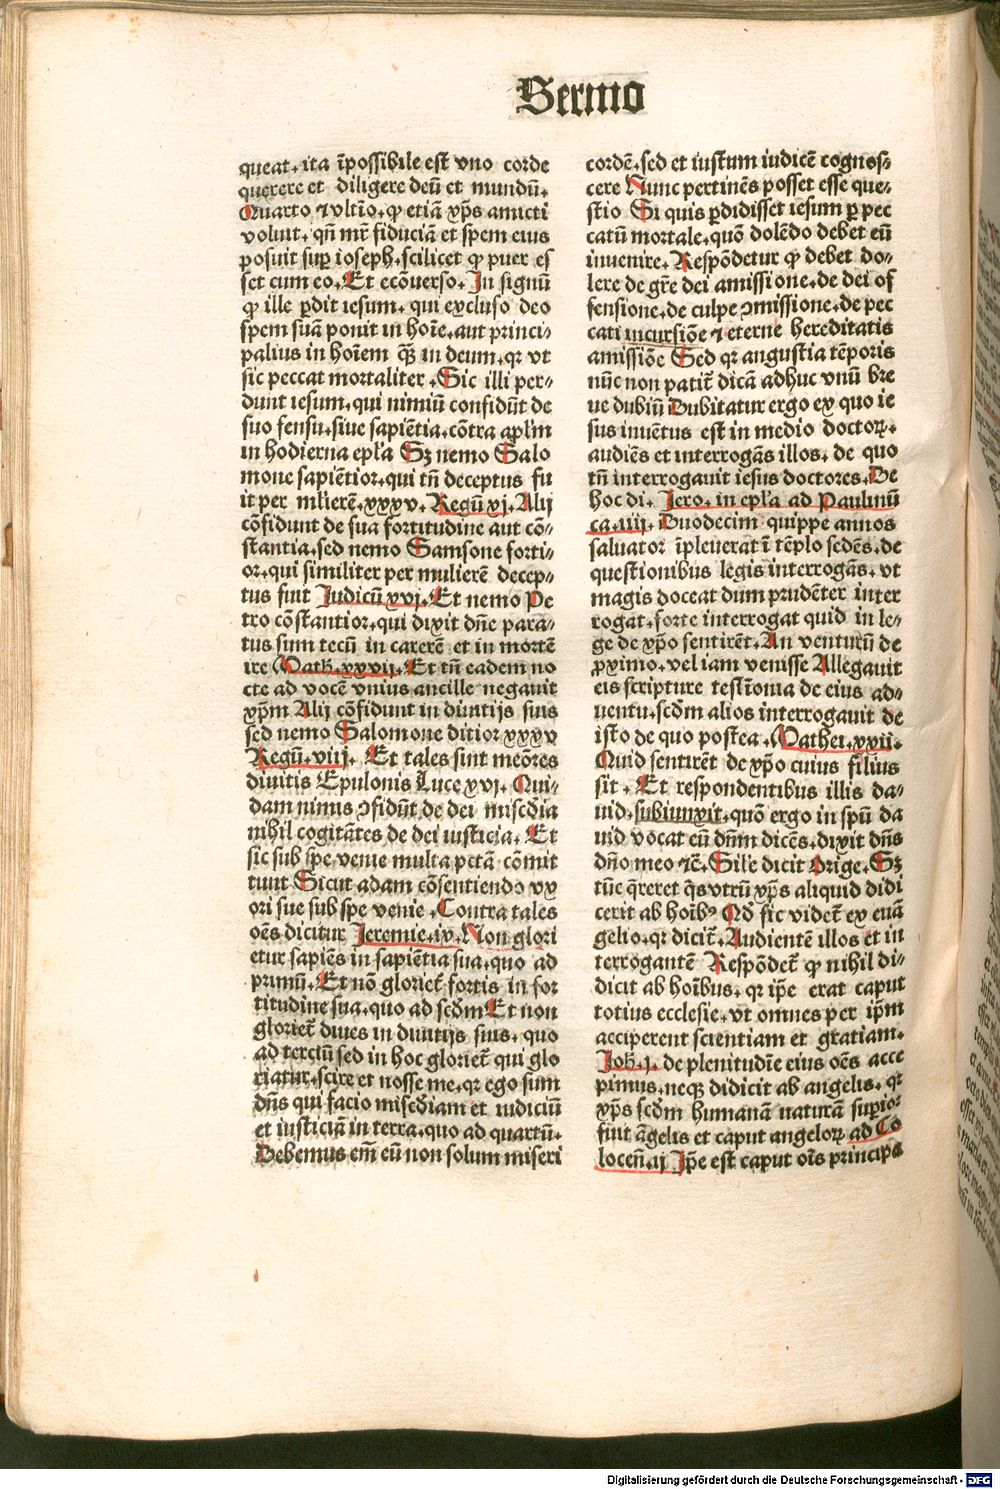 Sermo
queat. ita īpossibile est vno corde
querere et diligere deū et mundū.
Quarto ⁊ vltīo. ꝙ etiā xp̄s amicti
voluit. qn̄ mr̄ fiduciā et spem eius
posuit suꝑ ioseph. scilicet ꝙ puer es
set cum eo. Et ecōuerso. In signū
ꝙ ille ꝑdit iesum. qui excluso deo
spem suā ponit in hoīe. aut princi⸗
palius in hoīem qꝫ̄ in deum. qr vt
sic peccat mortaliter. Sic illi per⸗
dunt iesum. qui nimiū confidūt de
suo sensu. siue sapiētia. cōtra apl̄m
in hodierna epl̄a Sꝫ nemo Salo
mone sapiētior. qui tn̄ deceptus fu
it per ml̄ierē. xxxv. Regū xj. Alij
cōfidunt de sua fortitudine aut cō⸗
stantia. sed nemo Samsone forti⸗
or. qui similiter per mulierē decep⸗
tus fuit Iudicū xvj. Et nemo Pe
tro cōstantior. qui dixit dn̄e para⸗
tus sum tecū in carcerē et in mortē
ire Math. xxvij. Et tn̄ eadem no
cte ad vocē vnius ancille negauit
xp̄m Alij cōfidunt in diuitijs suis
sed nemo Salomone ditior xxxv
Regū. viij. Et tales sint meōres
diuitis Epulonis Luce xvj. Qui⸗
dam nimis ↄfidūt de dei miscdīa
nihil cogitātes de dei iusticia. Et
sic sub spe venie multa pctā cōmit
tunt Sicut adam cōsentiendo vx
ori sue sub spe venie. Contra tales
oēs dicitur Jeremie. ix. Non glori
etur sapiēs in sapiētia sua. quo ad
primū. Et nō glorieť fortis in for
titudine sua. quo ad scd̄m Et non
glorieť diues in diuitijs suis. quo
ad terciū sed in hoc glorieť qui glo
riatur. scire et nosse me. qr ego sum
dn̄s qui facio misc̄diam et iudiciū
et iusticiā in terra. quo ad quartū.
Debemus em̄ eū non solum miseri
cordē. sed et iustum iudicē cognos⸗
cere Nunc pertinēs posset esse que⸗
stio Si quis ꝑdidisset iesum ꝑ pec
catū mortale. quō dolēdo debet eū
inuenire. Respōdetur ꝙ debet do⸗
lere de gr̄e dei amissione. de dei of
fensione. de culpe ↄmissione. de pec
cati incursiōe ⁊ eterne hereditatis
amissiōe Sed qr angustia tēporis
nūc non patiť dicā adhuc vnū bre
ue dubiū Dubitatur ergo ex quo ie
sus inuētus est in medio doctoꝝ.
audiēs et interrogās illos. de quo
tn̄ interrogauit iesus doctores. De
hoc di. Jero. in epl̄a ad Paulinū
ca. iiij. Duodecim quippe annos
saluator īpleuerat ī tēplo sedēs. de
questionibus legis interrogās. vt
magis doceat dum prudēter inter
rogat. forte interrogat quid in le⸗
ge de xp̄o sentirēt. An venturū de
ꝓximo. vel iam venisse Allegauit
eis scripture testīonia de eius ad⸗
uentu. scd̄m alios interrogauit de
isto de quo postea. Mathei. xxii.
Quid sentirēt de xp̄o cuius filius
sit. Et respondentibus illis da⸗
uid. subiunxit. quō ergo in spū da
uid vocat eū dn̄m dicēs. dixit dn̄s
dn̄o meo ⁊c̄. Sil̄e dicit Orige. Sꝫ
tūc q̄reret q̄s vtrū xp̄s aliquid didi
cerit ab hoībꝰ Qd̓ sic videť ex euā
gelio. qr diciť. Audientē illos et in
terrogantē Respōdeť ꝙ nihil di⸗
dicit ab hoībus. qr ip̄e erat caput
totius ecclesie. vt omnes per ip̄m
acciperent scientiam et gratiam.
Joh̄. j. de plenitudīe eius oēs acce
pimus. neqꝫ didicit ab angelis. qr
xp̄s scd̄m humanā naturā suꝑior
fuit āgelis et caput angeloꝝ ad Co
locen̄. ij Ip̄e est caput oīs principa
Digitalisierung gefördert durch die Deutsche Forschungsgemeinschaft - DFG